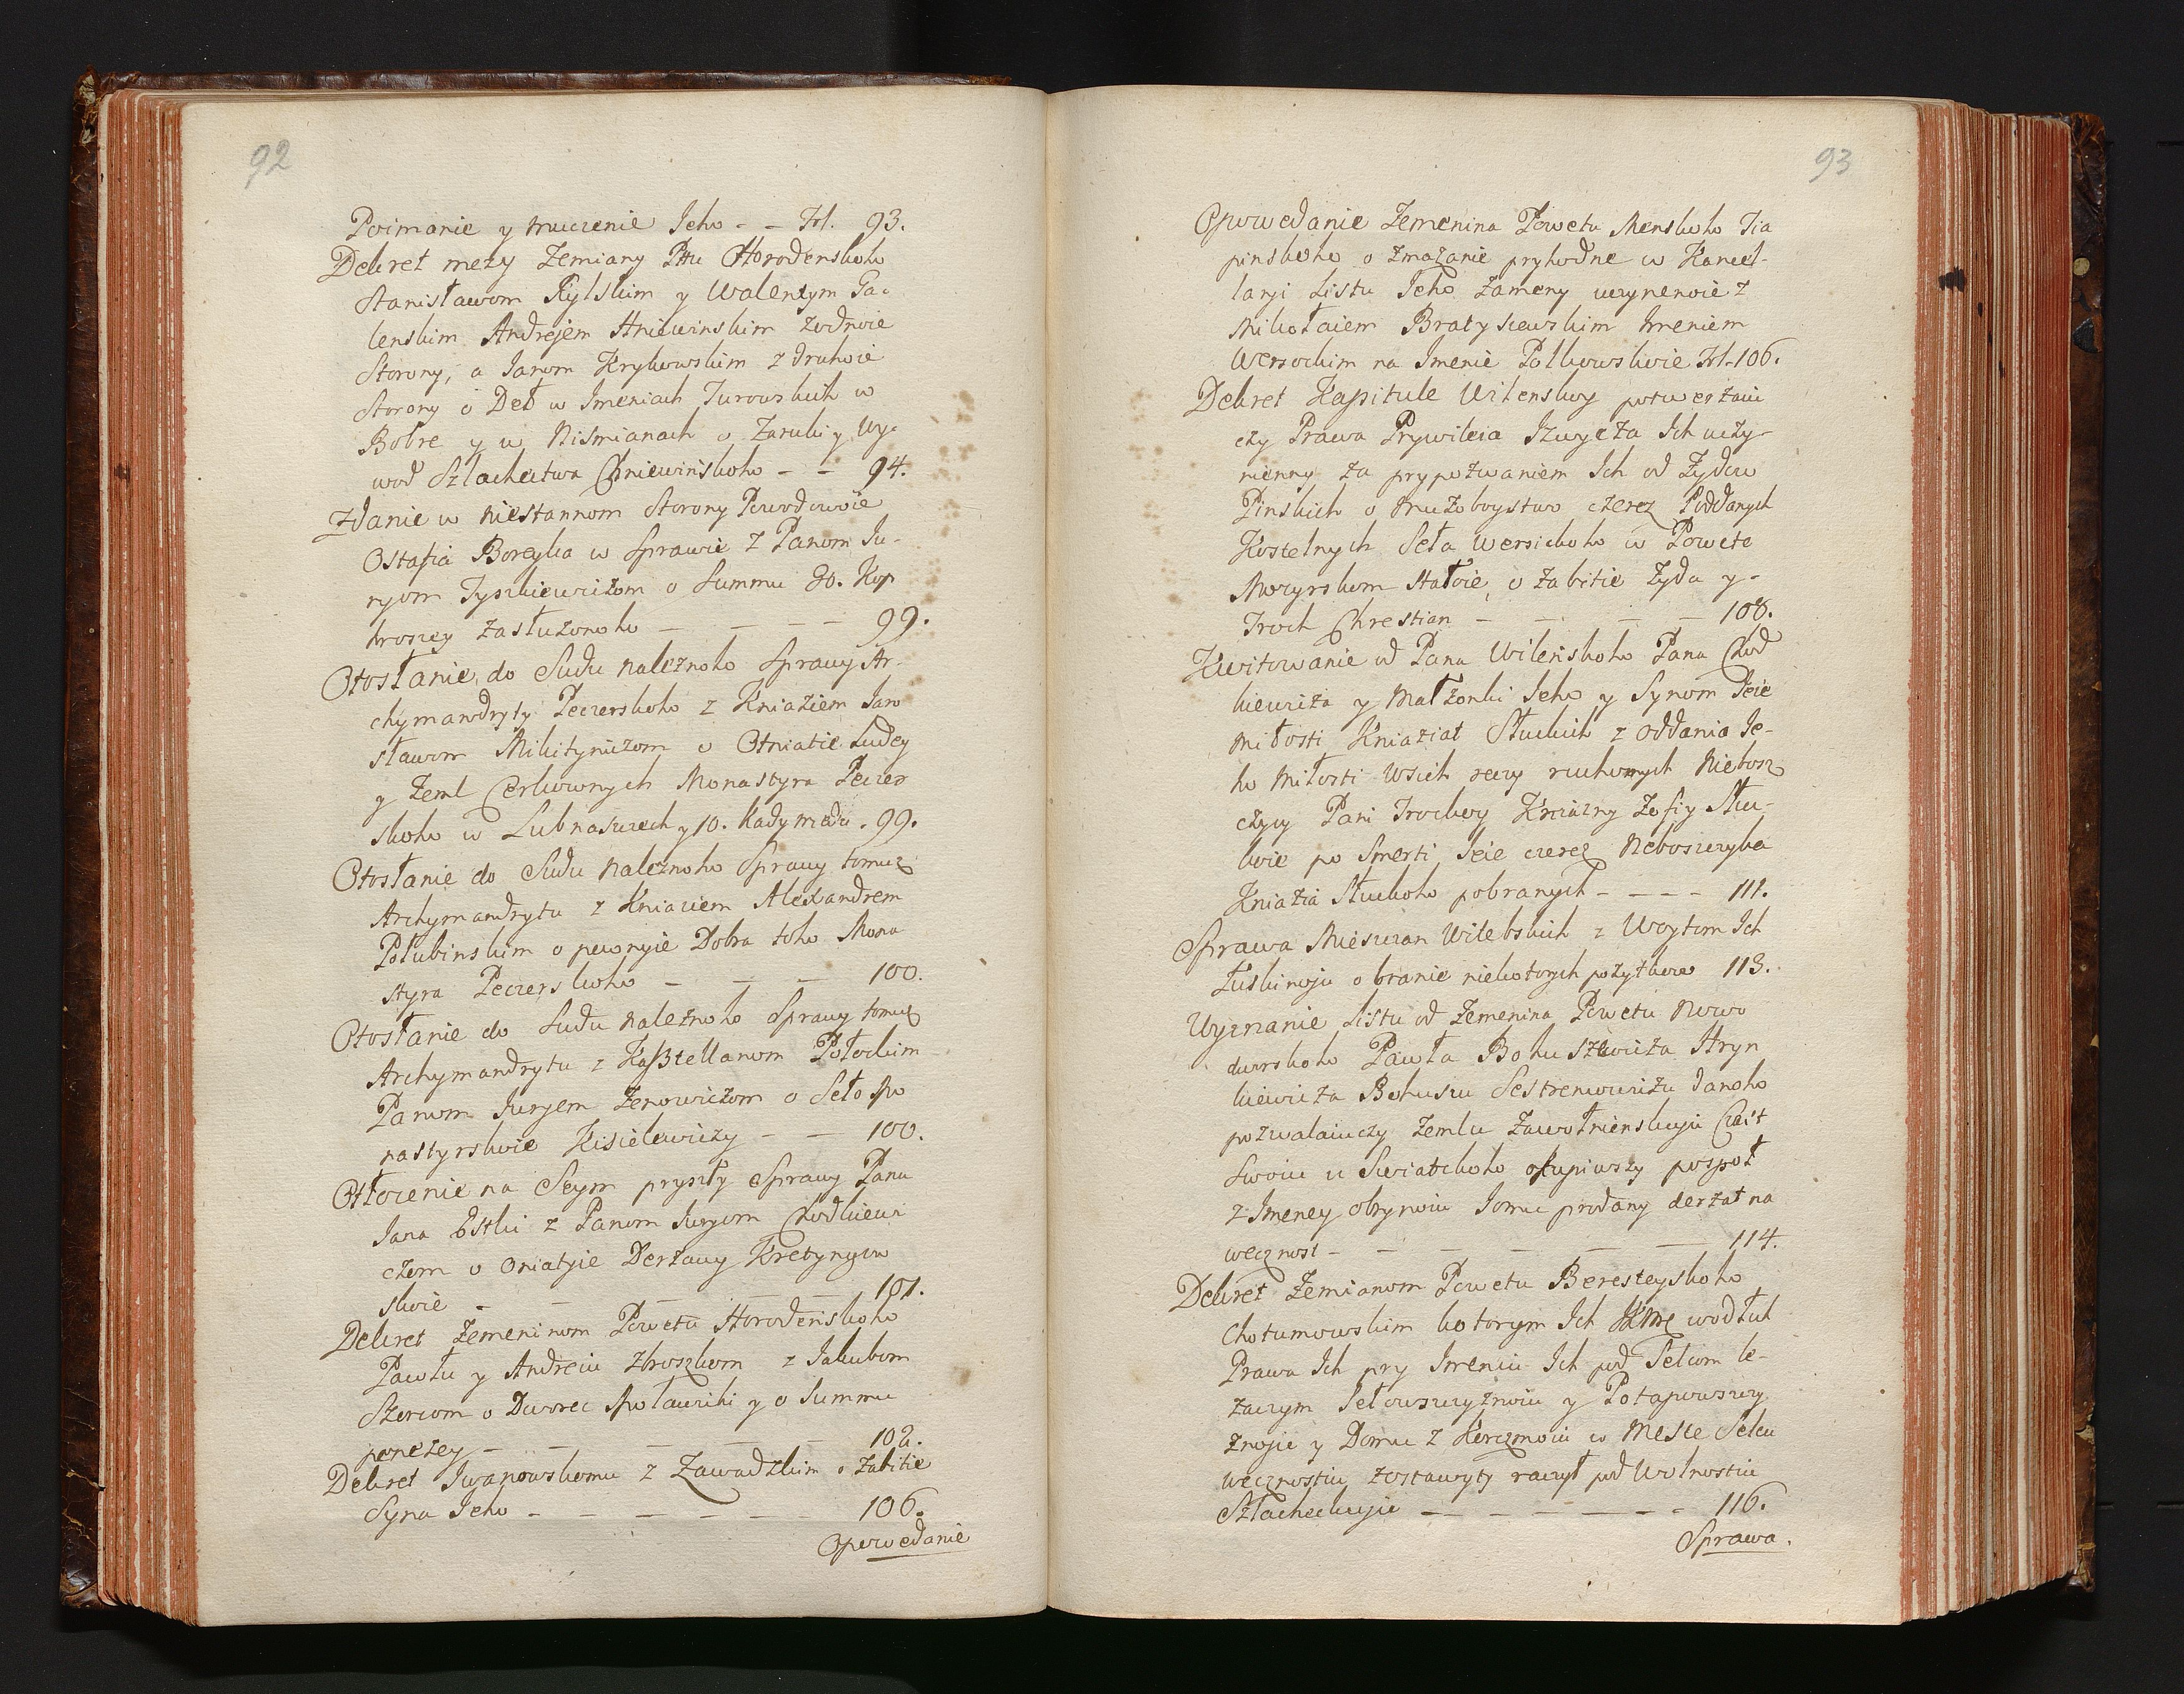 92
Poimanie y muczenie Jeho - - Fol. 93.
Dekret mezy Zemiany Pttu Horodenskoho
Stanisławom Rylskim y Walentym Ga-
lenskim Andrejem Hniewinskim zodnoie
Storony, a Janom Krykowskim z druhoie
Storony o Deł w Imeniach Turowskich w
Bobre y w Nismianach o Zaruki y Wy-
wod Szlachectwa Chniewińskoho - - 94.
Zdanie w niestannom Storony Powodowoie
Ostafia Boreyka w Sprawie z Panom Ju-
ryom Tyszkiewiżom o Summu 30. Kop
hroszey zasłużonoho - - - - 99.
Otosłanie do Sudu należnoho Sprawy Ar-
chymandryty Peczerskoho z Kniaziem Jaro
sławom Mikityniżom o Otniatie Ludey
y Zeml Cerkownych Monastyra Peczer
skoho w Lubnaszech y 10. Kady miedu. 99.
Otosłanie do Sudu należnoho Sprawy tomuż
Archymandrytu z Kniaziem Alexandrem
Połubinskim o pewnyie Dobra toho Mona
styra Peczerskoho - - - 100.
Otosłanie do Sudu należnoho Sprawy tomuż
Archymandrytu z Kasztellanom Połockim
Panom Juryem Zenowiczom o Seło Mo
nastyrskoie Kisielewiczy - - 100.
Otłożenie na Seym pryszły Sprawy Pana
Jana Estki z Panom Juryom Chodkiewi
czom o Oniatyie Derżawy Kretyngow
skoie - - - - - 101.
Dekret Zemeninom Powetu Horodeńskoho
Pawłu y Andreiu Zbroszkom z Jakubom
Szercom o Dworec Mołauriki y o Summu
penezey - - - - - 102.
Dekret Iwanowskomu z Zawadzkim o Zabitie
Syna Jeho - - - - - - 106.
Opowedanie
93
Opowedanie Zemenina Powetu Menskoho Tia
pinskoho o zmazanie pryhodne w Kancel-
laryi Listu Jeho Zameny uczynenoie z
Mikołaiem Bratysiewskim Imeniem
Wersockim na Imenie Polkowskoie Fol. 106.
Dekret Kapitule Wilenskoy potwerżaiu
czy Prawa Prywileia Zwyczża Ich uczy-
nienny za prypozwaniem Ich od Żydow
Pinskich o mużoboystwo czerez Poddanych
Kostelnych Seła Wersickoho w Powete
Mozyrskom stałoie, o zabitie Żyda y
Troch Chrestian - - - - 108.
Kwitowanie od Pana Wileńskoho Pana Chod
kiewiża y Małżonki Jeho y Synom Jeie
Miłosti Kniażat Słuckich z oddania Je-
ho Miłosti Wsich reczy ruchomych Nieboż
czycy Pani Trockoy Kniażny Zofiy Słu-
ckoie po Smerti Jeie czerez Neboszczyka
Kniazia Słuckoho pobranych - - - - 111.
Sprawa Mieszczan Witebskich z Woytom Ich
Łuskinoju o branie niekotorych pożytkow 113.
Wyznanie Listu od Zemenina Powetu Nowo
dworskoho Pawła Bohuszewiża Hryn
kiewiża Bohuszu Sestrencewiżu danoho
pozwalaiuczy Zemlu Zawołnienskuju Czast
Swoiu u Swiatckoho okupiwszy pospoł
z Imeney obrynoiu Jomu prodany derżat na
wecznost - - - - - - 114.
Dekret Zemianom Powetu Beresteyskoho
Chotumowskim kotorym Ich JKMc wodłuh
Prawa Ich pry Imeniu Ich pod Selcom le-
zaczym Sełowszczyznoiu y Potapowszczy
znoju y Domu z Korczmoiu w Meste Selcu
wecznostiu zostawyty raczył pod Wolnostiu
Szlacheckuju - - - - - - 116.
Sprawa.